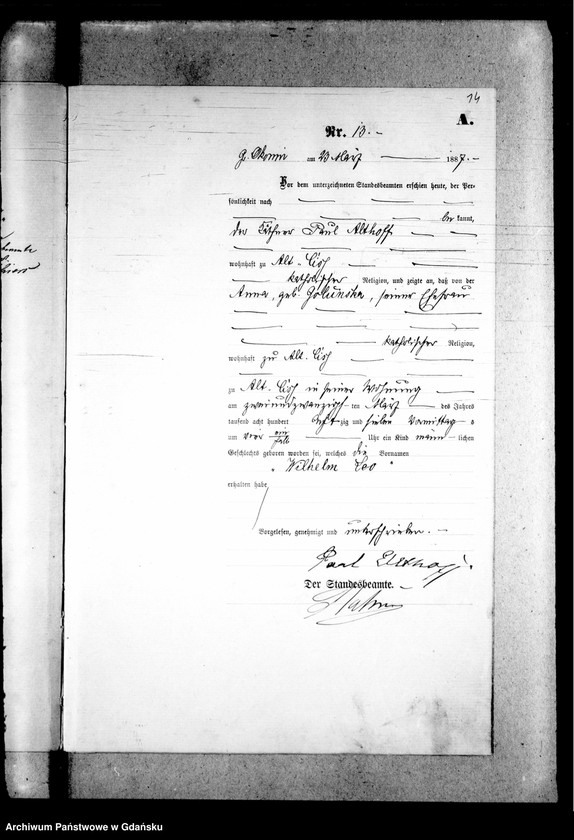 14
A.
Nr. 13.
am 23 März 1887.
Vor dem unterzeichneten Standesbeamten erschien heute, der Per-
sönlichkeit nach
be kannt,
der Käthner Paul Althoff
wohnhaft zu Alt-
katholischer Religion, und zeigte an, daß von der
Anna, geb. Golunska, seiner Ehefrau
katholischer Religion,
wohnhaft zu Alt-
zu Alt- in seiner Wohnung
am zweiundzwanzigsten März des Jahres
tausend acht hundert achtzig und sieben Vormittags
um vier ein halb Uhr ein Kind männlichen
Geschlechts geboren worden sei, welches die Vornamen
"Wilhelm Leo"
erhalten habe
Vorgelesen, genehmigt und unterschrieben.
Paul Althoff.
Der Standesbeamte.
Archiwum Państwowe w Gdańsku